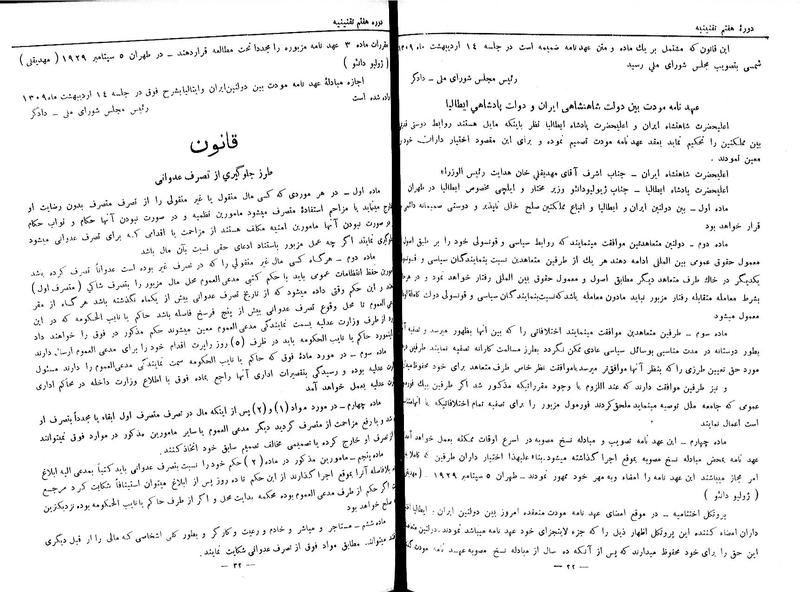 دورهٔ هفتم تقنینیه
این قانون که مشتمل بر یك ماده و متن عهد نامه ضمیمه است در جلسه ۱۴ اردیبهشت ماه ۱۳۰۹
شمسی بتصویب مجلس شورای ملی رسید
رئیس مجلس شورای ملی ـ دادگر
عهد نامه مودت بین دولت شاهنشاهی ایران و دولت پادشاهی ایطالیا
اعلیحضرت شاهنشاه ایران و اعلیحضرت پادشاه ایطالیا نظر باینکه مایل هستند روابط دوستی قدیمی
بین مملکتین را تحکیم نماید بعقد عهد نامه مودت تصمیم نموده و برای این مقصود اختیار داران خودرا
معین نمودند .
اعلیحضرت شاهنشاه ایران ـ جناب اشرف آقای مهدیقلی خان هدایت رئیس الوزراء
اعلیحضرت پادشاه ایطالیا ـ جناب ژیولیودانئو وزیر مختار و ایلچی مخصوص ایطالیا در طهران
ماده اول ـ بین دولتین ایران و ایطالیا و اتباع مملکتین صلح خلل ناپذیر و دوستی صمیمانه دائمی
قرار خواهد بود
ماده دوم ـ دولتین متعاهدتین موافقت مینمایند که روابط سیاسی و قونسولی خود را بر طبق اصول
معمول حقوق عمومی بین المللی ادامه دهند هر یك از طرفین متعاهدین نسبت بنمایندگان سیاسی و قونسولی
یکدیگر در خاك طرف متعاهد دیگر مطابق اصول و معمول حقوق بین المللی رفتار خواهد نمود و در هر
بشرط معامله متقابله رفتار مزبور نباید مادون معامله باشد که نسبت بنمایندگان سیاسی و قونسولی دولت کاملةالوداد
معمول میشود
ماده سوم ـ طرفین متعاهدین موافقت مینمایند اختلافاتی را که بین آنها بظهور میرسد و تصفیه آن
بطور دوستانه در مدت مناسبی بوسائل سیاسی عادی ممکن نگردد بطرز مسالمت کارانه تصفیه نمایند طرفین در هر
مورد حق تعیین طرزی را که بنظر آنها موافق تر میرسد با موافقت نظر خاص طرف متعاهد برای خود محفوظ میدارند
و نیز طرفین موافقت دارند که عند اللزوم با وجود مقرراتیکه مذکور شد اگر طرفین بیك فورمول
عمومی که جامعه ملل توصیه مینماید ملحق گردند فورمول مزبور را برای تصفیه تمام اختلافاتیکه با آنها
است اعمال نمایند
ماده چهارم ـ این عهد نامه تصویب و مبادله نسخ مصوبه در اسرع اوقات ممکنه بعمل خواهد آمد
عهد نامه بمحض مبادله نسخ مصوبه بموقع اجرا گذاشته میشود. بناء علیهذا اختیار داران طرفین که کاملا
امر مجاز میباشند این عهد نامه را امضاء و به مهر خود ممهور نمودند ـ طهران ۵ سپتامبر ۱۹۲۹ ـ ( مهدیقلی )
( ژولیو دانئو )
پروتکل اختتامیه ـ در موقع امضای عهد نامه مودت منعقده امروز بین دولتین ایران و ایطالیا اختیار
داران امضاء کننده این پروتکل اظهار ذیل را که جزء لایتجزای خود عهد نامه میباشد نمودند. دولتین متعاهدتین
این حق را برای خود محفوظ میدارند که پس از آنکه ده سال از مبادله نسخ مصوبه عهد نامه مودت گذشت
ـ ۲۲ ـ
دوره هفتم تقنینیه
مقررات ماده ۳ عهد نامه مزبوره را مجدداً تحت مطالعه قرار دهند ـ در طهران ۵ سپتامبر ۱۹۲۹ ( مهدیقلی )
( ژولیو دانئو )
اجازه مبادلهٔ عهد نامه مودت بین دولتین ایران و ایتالیا بشرح فوق در جلسه ۱۴ اردیبهشت ماه ۱۳۰۹
داده شده است
رئیس مجلس شورای ملی ـ دادگر
قانون
طرز جلوگیری از تصرف عدوانی
ماده اول ـ در هر موردی که کسی مال منقول یا غیر منقولی را از تصرف متصرف بدون رضایت او
خارج مینماید یا مزاحم استفادهٔ متصرف میشود مأمورین نظمیه و در صورت نبودن آنها حکام و نواب حکام
در صورت نبودن آنها مأمورین امنیه مکلف هستند از مزاحمت یا اقدامی که برای تصرف عدوانی میشود
جلوگیری نمایند اگر چه عمل مزبور باستناد ادعای حقی نسبت بآن مال باشد
ماده دوم ـ هر گاه کسی مال غیر منقولی را که در تصرف غیر بوده است عدواناً تصرف کرده باشد
مأمورین حفظ انتظامات عمومی باید با حکم کتبی مدعی العموم محل مال مزبور را بتصرف شاکی ( متصرف اول )
دهند و این حکم وقتی داده میشود که از تاریخ تصرف عدوانی بیش از یکماه نگذشته باشد هر گاه از مقر
مدعی العموم تا محل وقوع تصرف عدوانی بیش از پنج فرسخ فاصله باشد حاکم یا نایب الحکومه که در این
مورد از طرف وزارت عدلیه بسمت نمایندگی مدعی العموم معین میشوند حکم مذکور در فوق را خواهند داد
اینمورد حاکم یا نایب الحکومه باید در ظرف (۵) روز راپرت اقدام خود را برای مدعی العموم ارسال دارند
ماده سوم ـ در مورد مادهٔ فوق که حاکم یا نایب الحکومه سمت نمایندگی مدعی العموم را دارند مسئول
وزارت عدلیه بوده و رسیدگی بتقصیرات اداری آنها راجع بماده فوق با اطلاع وزارت داخله در محاکم اداری
وزارت عدلیه بعمل خواهد آمد
ماده چهارم ـ در مورد مواد (۱) و (۲) پس از اینکه مال در تصرف متصرف اول ابقاء یا مجدداً بتصرف او
داده شد و یا رفع مزاحمت از متصرف گردید دیگر مدعی العموم یا سایر مأمورین مذکور در موارد فوق نمیتوانند
از تصرف او خارج کرده یا تصمیمی مخالف تصمیم سابق خود اتخاذ کنند.
ماده پنجم ـ مأمورین مذکور در ماده (۲) حکم خود را نسبت بتصرف عدوانی باید کتباً بمدعی الیه ابلاغ
و بلافاصله آنرا بموقع اجرا گذارند از این حکم تا ده روز پس از ابلاغ میتوان استینافاً شکایت کرد مرجع
اگر حکم از طرف مدعی العموم بوده محکمه بدایت محل و اگر از طرف حاکم یا نایب الحکومه بوده نزدیکترین
صلح خواهد بود
ماده ششم ـ مستأجر و مباشر و خادم و رعیت و کارگر و بطور کلی اشخاصی که مالی را از قبل دیگری
متصرفند میتوانند مطابق مواد فوق از تصرف عدوانی شکایت نمایند.
ـ ۳۲ ـ